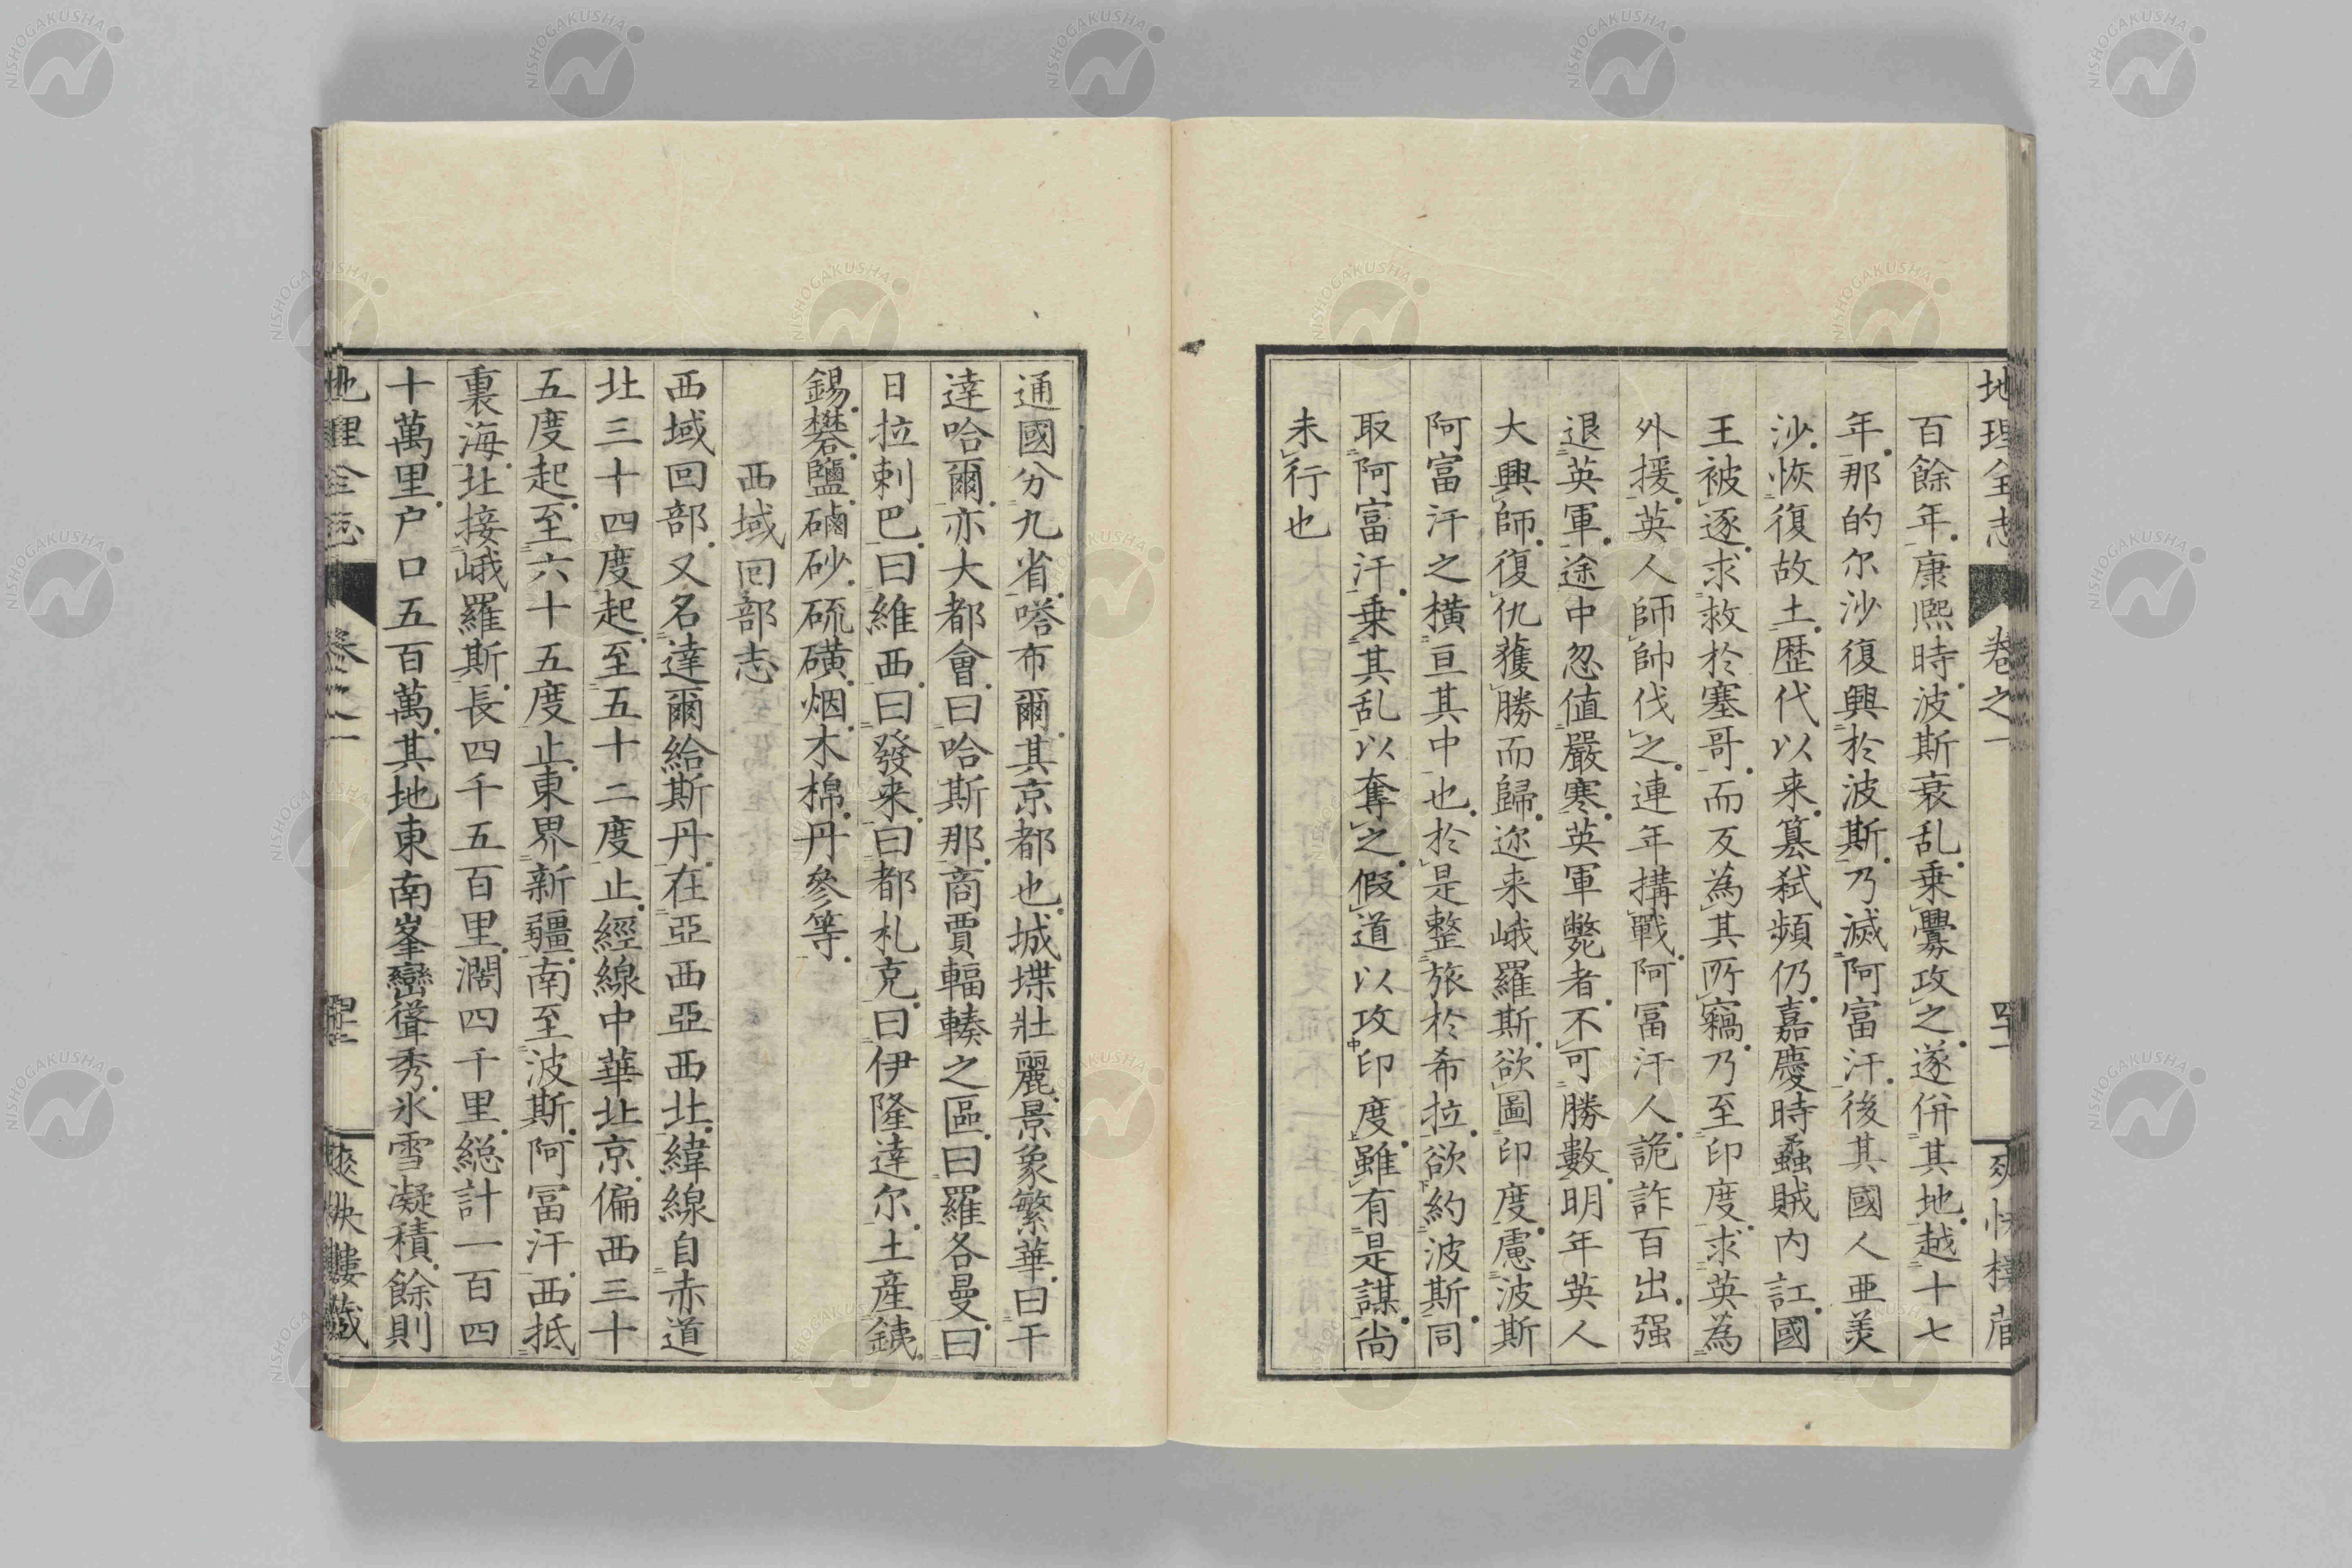 地理全志 卷之一
百餘年康熙時波斯衰乱乗釁攻之遂併其地越十七
年那的尓沙復興於波斯乃滅阿富汗後其國人亜羙
沙恢復故土歴代以来簒弒頻仍嘉慶時蟊賊内訌國
王被逐求救於塞哥而反為其所竊乃至印度求英為
外援英人師帥伐之連年搆戰阿冨汗人詭詐百出强
退英軍途中忽値嚴寒英軍斃者不可勝數明年英人
大興師復仇獲勝而歸迩来峨羅斯欲圖印度慮波斯
阿富汗之横亘其中也於是整旅於希拉欲約波斯同
取阿富汗乗其乱以奪之假道以攻印度雖有是謀尚
未行也
通國分九省喀布爾其京都也城堞壯麗景象繁華曰干
達哈爾亦大都會曰哈斯那商賈輻輳之區曰羅各曼曰
日拉剌巴曰維西曰發来曰都札克曰伊隆達尓土産銕
錫礬鹽磠砂硫磺烟木棉丹參等
西域回部志
西域回部又名達爾給斯丹在亞西亞西北緯線自赤道
北三十四度起至五十二度止經線中華北京偏西三十
五度起至六十五度止東界新疆南至波斯阿冨汗西抵
裏海北接峨羅斯長四千五百里濶四千里総計一百四
十萬里户口五百萬其地東南峯巒聳秀氷雪凝積餘則
地理全志 爽快樓蔵